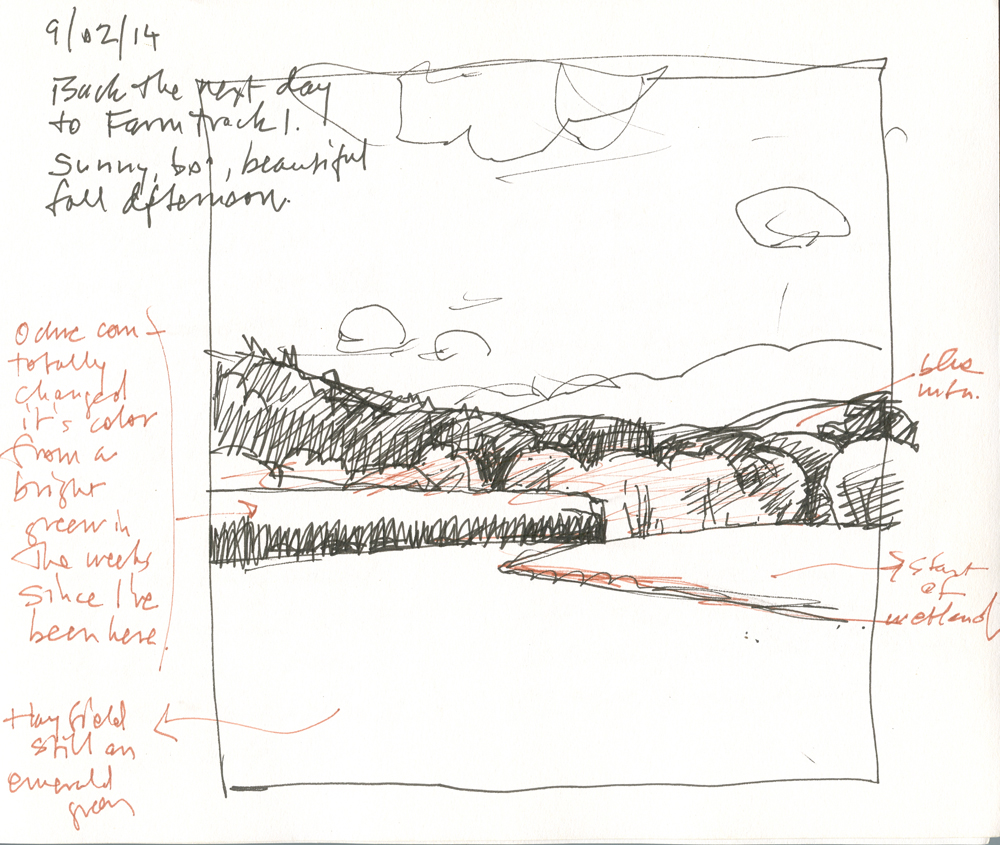 9/02/14
Back the next day
to Farm Track 1.
Sunny, , beautiful
fall afternoon.
corn
totally
changed
it's color
from a
bright
green in
the weeks
since I've
been here.
Hayfield
still an
emerald
green
blue
mtn.
start
of
wetland